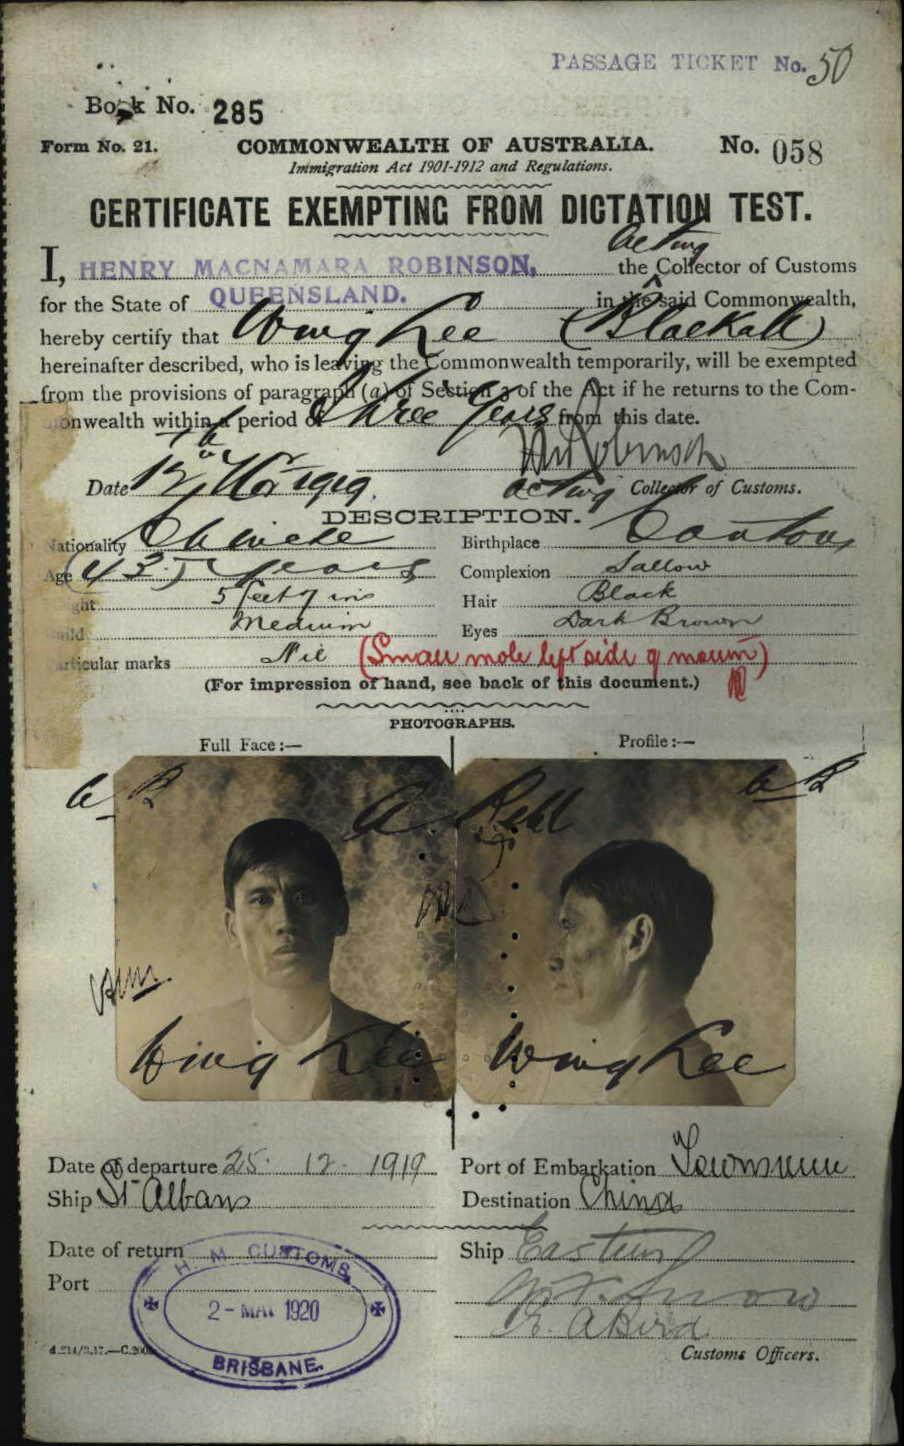 PASSAGE TICKET No. 50
Book No. 285
Form No. 21. COMMONWEALTH OF AUSTRALIA. No. 058
Immigration Act 1901-1912 and Regulations.
CERTIFICATE EXEMPTING FROM DICTATION TEST.
acting
I, HENRY MACNAMARA ROBINSON, the Collector of Customs
for the State of QUEENSLAND. in the said Commonwealth,
hereby certify that Wing Lee (Blackall)
hereinafter described, who is leaving the Commonwealth temporarily, will be exempted
from the provisions of paragraph (a) of Section 3 of the Act if he returns to the Com-
monwealth within a period of Three Years from this date.
Date 12th Nov 1919. acting Collector of Customs.
DESCRIPTION.
Nationality Chinese Birthplace Canton
Age (43) years Complexion Sallow
Height 5 feet 7 ins Hair Black
Build Medium Eyes Dark Brown
Particular marks Nil (Small mole left side of mouth)
(For impression of hand, see back of this document.)
PHOTOGRAPHS.
Full Face:— Profile:—
Wing Lee Wing Lee
Date of departure 25. 12. 1919 Port of Embarkation Townsville
Ship St Albans Destination China
Date of return Ship Eastern
Port
H. M. CUSTOMS
2 - MAY 1920
BRISBANE.
Customs Officers.